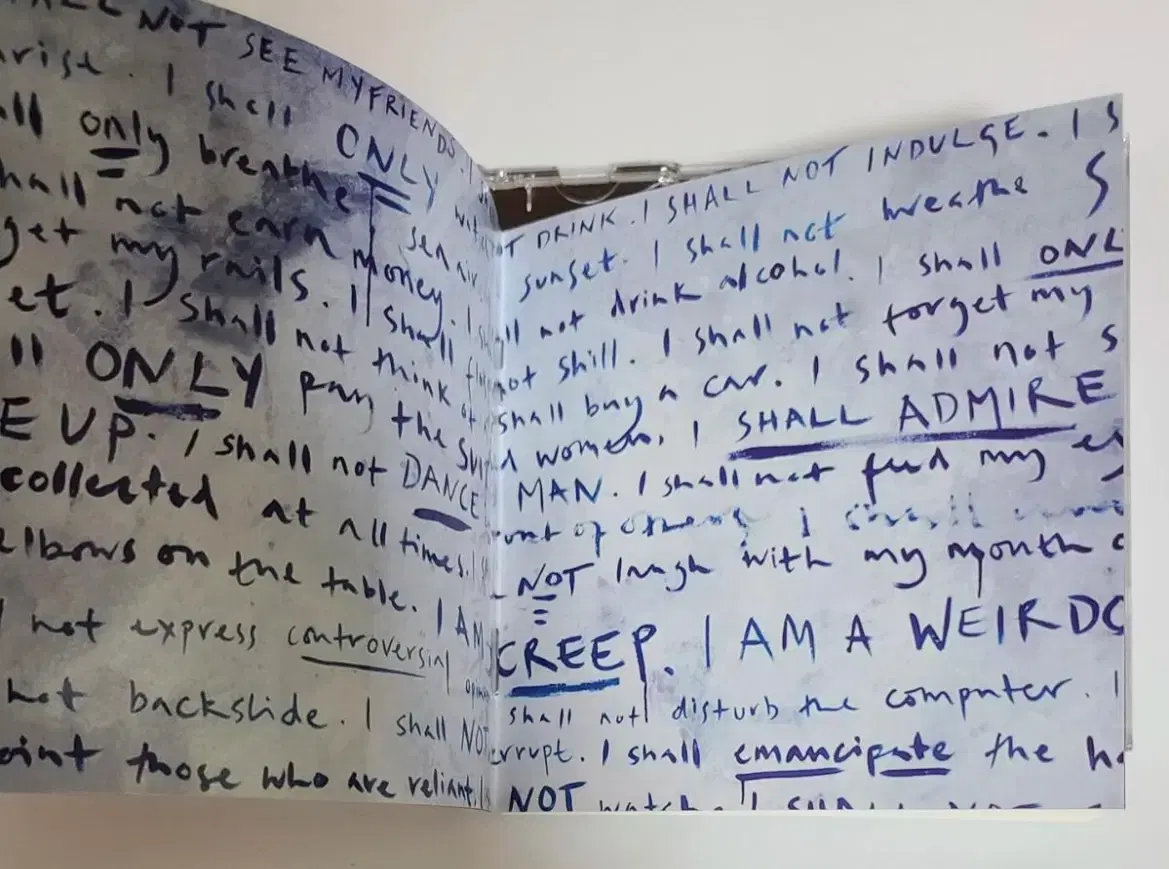 NOT SEE MY FRIENDS
I shall ONLY
only breathe
shall not earn money. I
get my nails. I shall
et. I shall not think of
ll ONLY pay the
E UP. I shall not DANCE
collected at all times.
elbows on the table. I AM
not express controversial
not backslide. I shall NOT
oint those who are reliant.
DRINK. I SHALL NOT INDULGE. I S
sunset. I shall not breathe S
not drink alcohol. I shall ONL
not shill. I shall not forget my
shall buy a car. I shall not s
women. I SHALL ADMIRE
MAN. I shall not feed my e
of others I shall
NOT laugh with my mouth
CREEP. I AM A WEIRDO
shall not disturb the computer. I
errupt. I shall emancipate the h
NOT watch I SHALL NOT